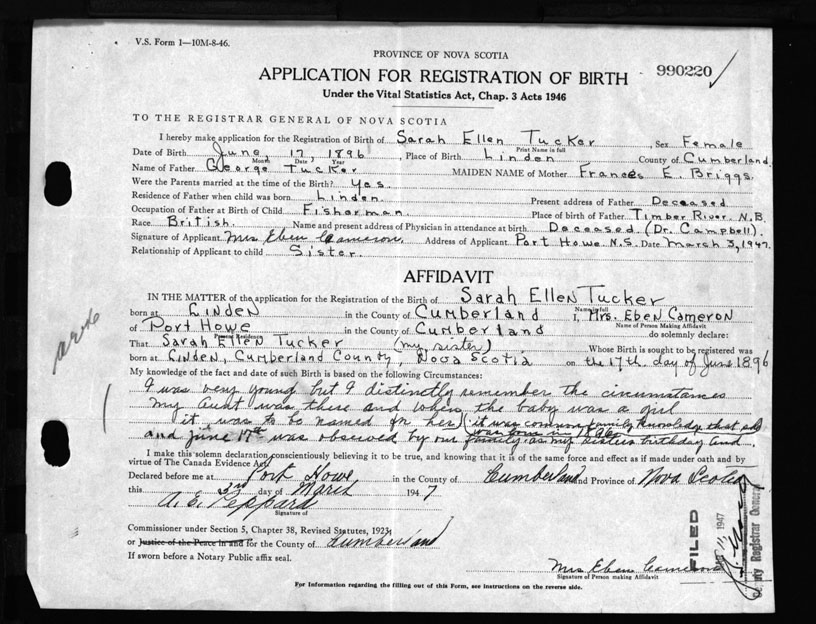 V.S. Form 1—10M-8-46.
PROVINCE OF NOVA SCOTIA
APPLICATION FOR REGISTRATION OF BIRTH
990220
Under the Vital Statistics Act, Chap. 3 Acts 1946
TO THE REGISTRAR GENERAL OF NOVA SCOTIA
I hereby make application for the Registration of Birth of Sarah Ellen Tucker, Sex Female
Print Name in full
Date of Birth June 17, 1896, Place of Birth Linden County of Cumberland
Month Date Year
Name of Father George Tucker MAIDEN NAME of Mother Frances E. Briggs.
Were the Parents married at the time of the Birth? Yes.
Residence of Father when child was born Linden. Present address of Father Deceased
Occupation of Father at Birth of Child Fisherman. Place of birth of Father Timber River, N.B.
Race British. Name and present address of Physician in attendance at birth Deceased (Dr. Campbell).
Signature of Applicant Mrs Eben Cameron. Address of Applicant Port Howe N.S. Date March 3, 1947.
Relationship of Applicant to child Sister.
AFFIDAVIT
IN THE MATTER of the application for the Registration of the Birth of Sarah Ellen Tucker
Name in full
born at Linden in the County of Cumberland I, Mrs. Eben Cameron
Name of Person Making Affidavit
of Port Howe in the County of Cumberland do solemnly declare:
Residence
That Sarah Ellen Tucker (my sister) Whose Birth is sought to be registered was
born at Linden, Cumberland County, Nova Scotia on the 17th day of June 1896
My knowledge of the fact and date of such Birth is based on the following Circumstances:
I was very young but I distinctly remember the circumstances
my Aunt was there and when the baby was a girl
it was to be named for her) it was common family knowledge that she
was born in 1896
and June 17th was observed by our family as my sisters birthday and
I make this solemn declaration conscientiously believing it to be true, and knowing that it is of the same force and effect as if made under oath and by
virtue of The Canada Evidence Act.
Declared before me at Port Howe in the County of Cumberland and Province of Nova Scotia
this 3rd day of March 1947
A. E. Peppard
Signature of
Commissioner under Section 5, Chapter 38, Revised Statutes, 1923
or Justice of the Peace in and for the County of Cumberland
If sworn before a Notary Public affix seal.
Mrs Eben Cameron
Signature of Person making Affidavit
For Information regarding the filling out of this Form, see instructions on the reverse side.
FILED
1947
Deputy Registrar General